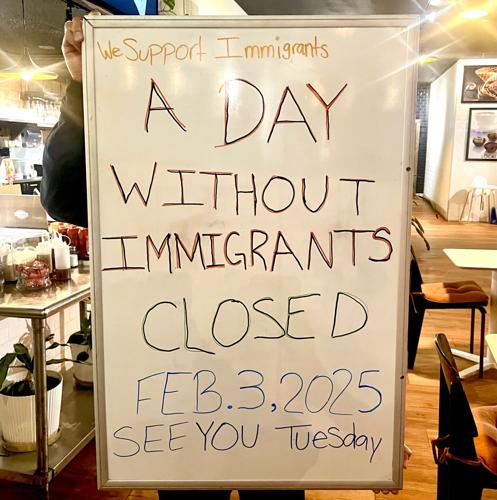 We Support Immigrants
A DAY
WITHOUT
IMMIGRANTS
CLOSED
FEB. 3, 2025
SEE YOU Tuesday